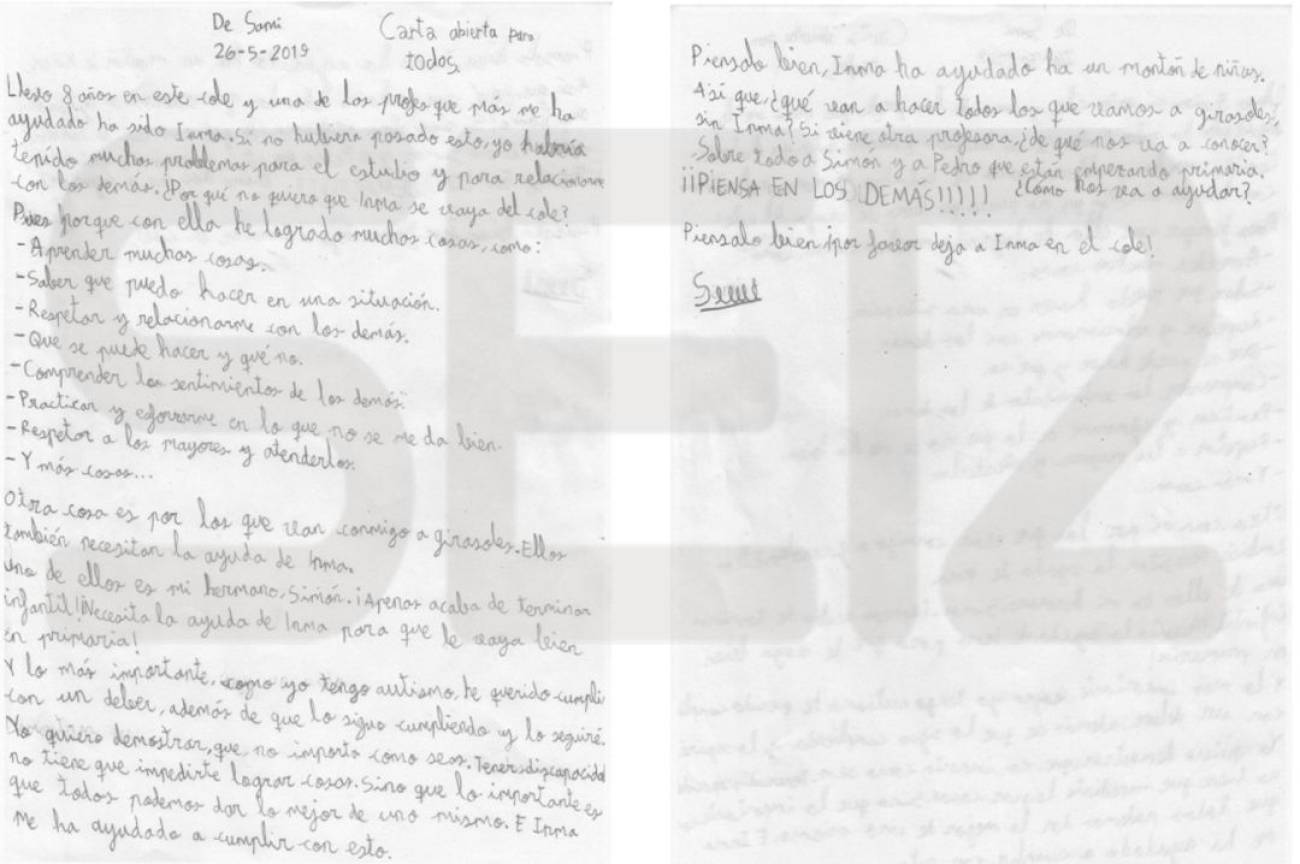 De Sami
26-5-2019
Carta abierta para
todos.
Llevo 8 años en este cole y una de los profes que más me ha
ayudado ha sido Inma. Si no hubiera pasado esto, yo habría
tenido muchos problemas para el estudio y para relacionarme
con los demás. ¿Por qué no quiero que Inma se vaya del cole?
Pues porque con ella he logrado muchas cosas, como:
-Aprender muchas cosas.
-Saber que puedo hacer en una situación.
-Respetar y relacionarme con los demás.
-Que se puede hacer y qué no.
-Comprender los sentimientos de los demás.
-Practicar y esforzarme en lo que no se me da bien.
-Respetar a los mayores y atenderlos.
-Y más cosas...
Otra cosa es por los que van conmigo a girasoles. Ellos
también necesitan la ayuda de Inma.
Uno de ellos es mi hermano, Simón. ¡Apenas acaba de terminar
infantil! ¡Necesita la ayuda de Inma para que le vaya bien
en primaria!
Y lo más importante, como yo tengo autismo, he querido cumplir
con un deber, además de que lo sigo cumpliendo y lo seguiré.
Yo quiero demostrar, que no importa como seas. Tener discapacidad
no tiene que impedirte lograr cosas. Sino que lo importante es
que todos podemos dar lo mejor de uno mismo. E Inma
me ha ayudado a cumplir con esto.
Piensalo bien, Inma ha ayudado ha un montón de niños.
Así que, ¿qué van a hacer todos los que vamos a girasoles,
sin Inma? Si viene otra profesora, ¿de qué nos va a conocer?
Sobre todo a Simón y a Pedro que están empezando primaria.
¡¡PIENSA EN LOS DEMÁS!!!!! ¿Cómo nos va a ayudar?
Piensalo bien ¡por favor deja a Inma en el cole!
SE12